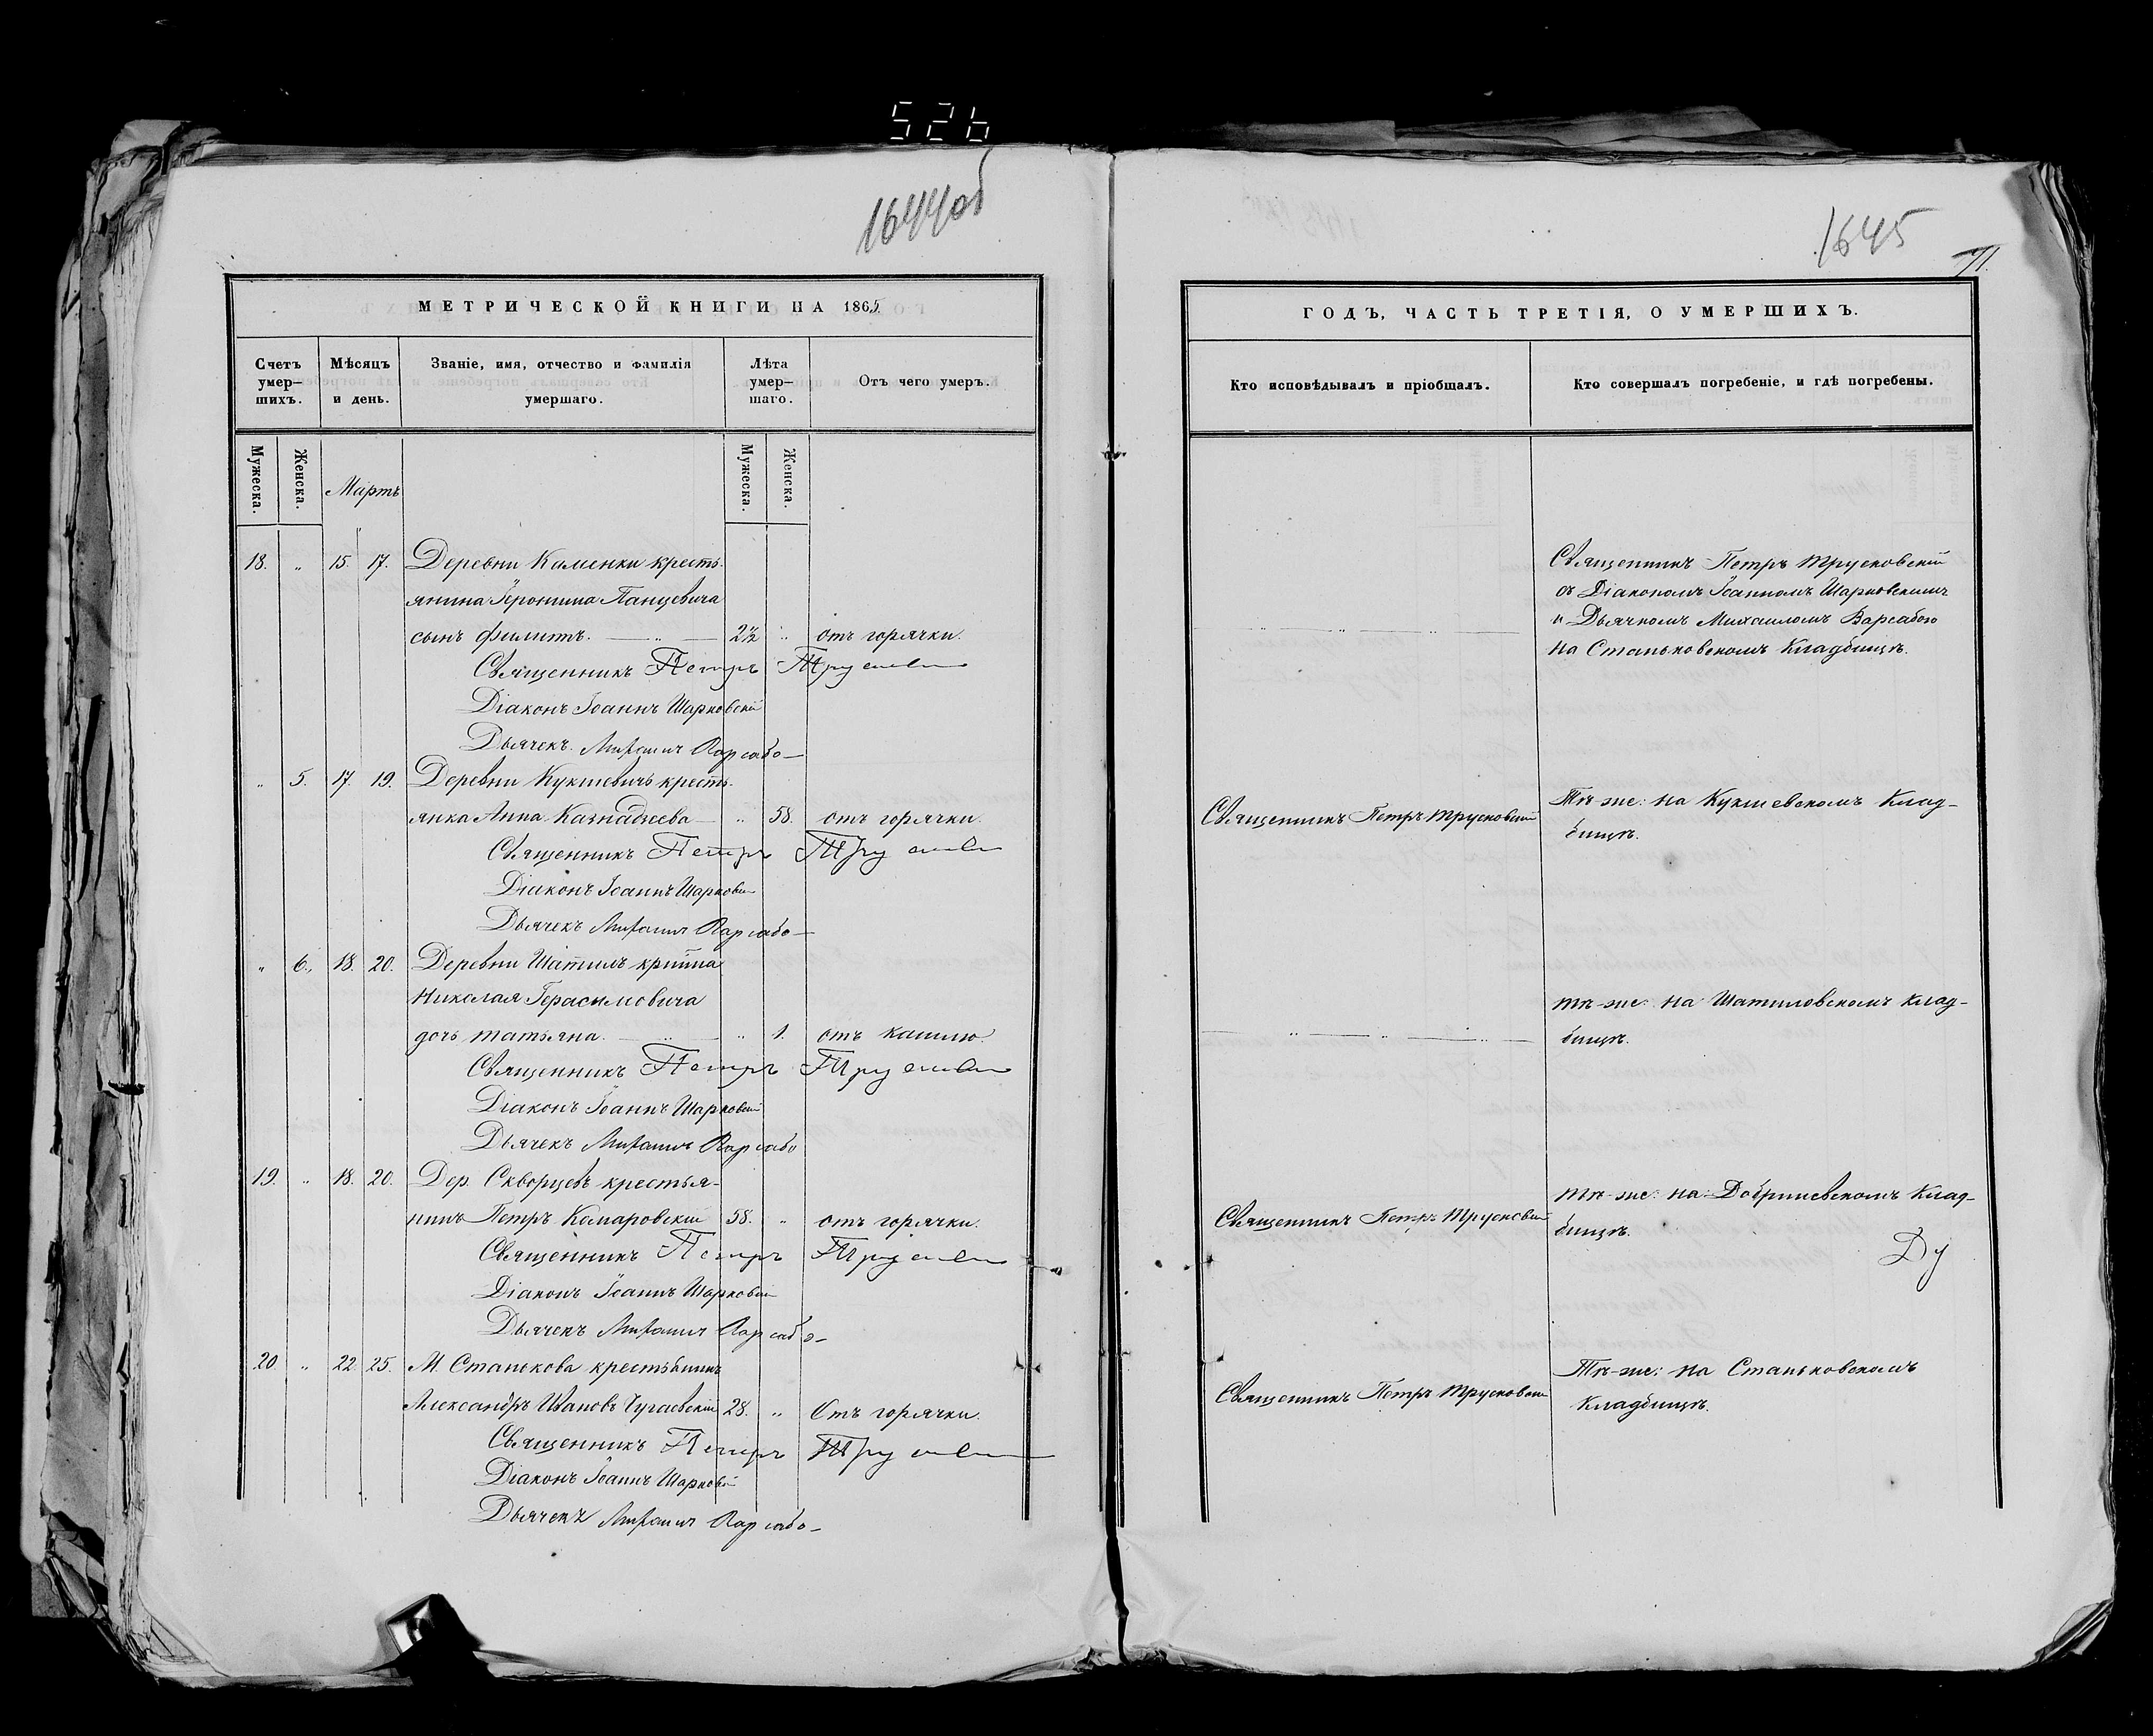 526
1644об
МЕТРИЧЕСКОЙ КНИГИ НА 1865
Счетъ умер-шихъ.
Мѣсяцъ и день.
Званіе, имя, отчество и фамилія умершаго.
Лѣта умер-шаго.
Отъ чего умеръ.
Мужеска.
Женска.
Мартъ
Мужеска.
Женска.
18. „ 15. 17. Деревни Каменки кресть-
янина Іеронима Панцевича
сынъ Филиппъ. 2½ „ отъ горячки.
Священникъ Петръ
Діаконъ Іоаннъ Шарковскій
Дьячекъ Михаилъ Варсабо
„ 5. 17. 19. Деревни Кукшевичъ кресть-
янка Анна Казнадѣева „ 58. отъ горячки.
Священникъ Петръ
Діаконъ Іоаннъ Шарковскій
Дьячекъ Михаилъ Варсабо
„ 6. 18. 20. Деревни Шатилъ
Николая Герасимовича
дочь Татьяна. „ 1. отъ кашлю.
Священникъ Петръ
Діаконъ Іоаннъ Шарковскій
Дьячекъ Михаилъ Варсабо
19. „ 18. 20. Дер. Скворцевъ крестья-
нинъ Петръ Комаровскій 58. „ отъ горячки.
Священникъ Петръ
Діаконъ Іоаннъ Шарковскій
Дьячекъ Михаилъ Варсабо
20 „ 22. 25. М. Станькова
Александръ Ивановъ 28. „ Отъ горячки.
Священникъ Петръ
Діаконъ Іоаннъ Шарковскій
Дьячекъ Михаилъ Варсабо
1645
71.
ГОДЪ, ЧАСТЬ ТРЕТІЯ, О УМЕРШИХЪ.
Кто исповѣдывалъ и пріобщалъ.
Кто совершалъ погребеніе, и гдѣ погребены.
Священникъ Петръ Трусковскій
съ Діакономъ Іоанномъ Шарковскимъ
и Дьячкомъ Михаиломъ Варсабою
на Станьковскомъ Кладбищѣ.
Священникъ Петръ Трусковскій
Тѣ-же: на Кукшевскомъ Клад-
бищѣ.
тѣ-же: на Шатиловскомъ клад-
бищѣ.
Священникъ Петръ Трусковскій
тѣ-же: на: Добриневскомъ Клад-
бищѣ.
Ду
Священникъ Петръ Трусковскій
Тѣ-же: на Станьковскомъ
Кладбищѣ.